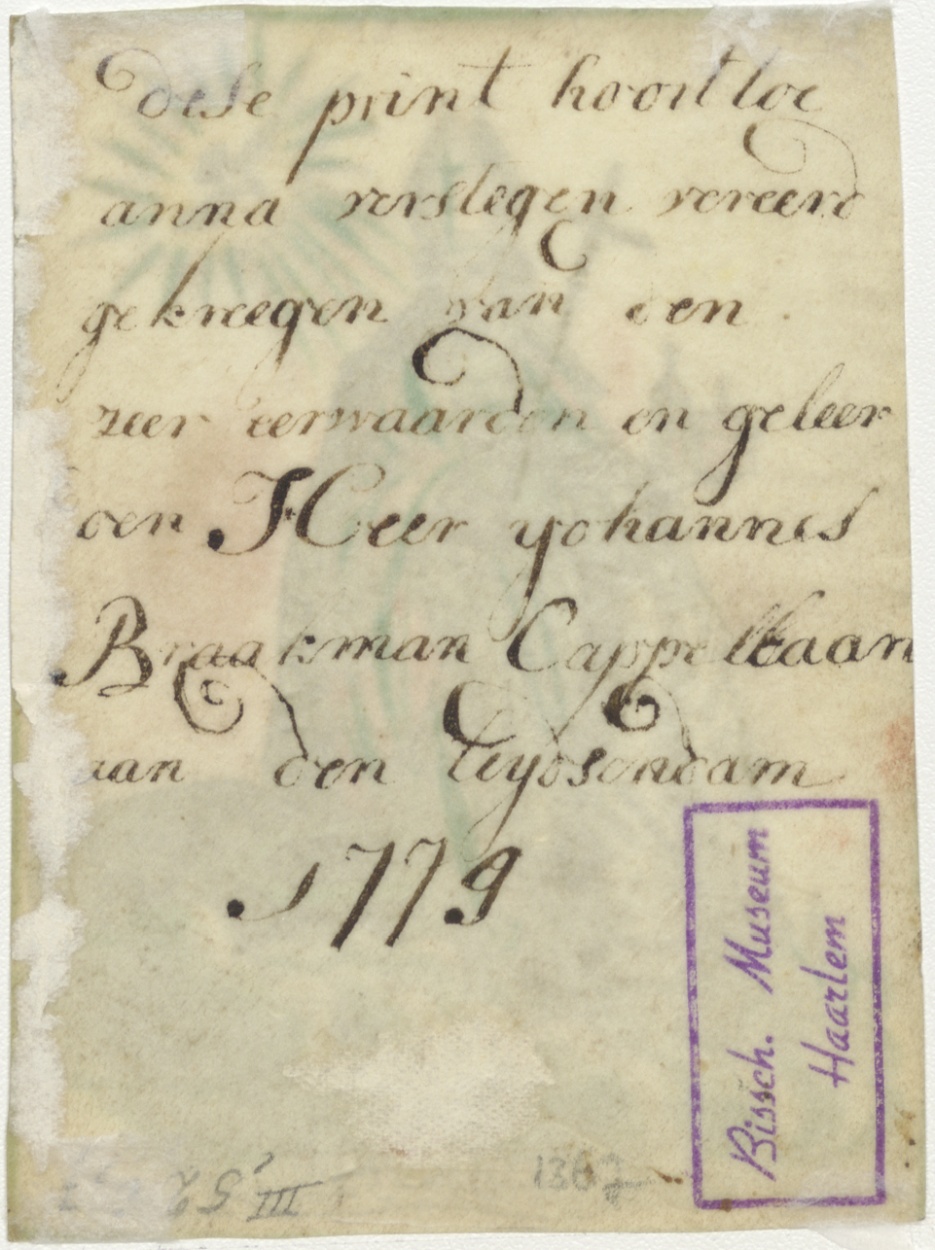 dese print hoort toe
anna verstegen vereerd
gekreegen van den
zeer eerwaarden en geleer
den Heer yohannes
Braakman Cappellaan
aan den Leydsendam
1779
Bissch. Museum
Haarlem
III, 52